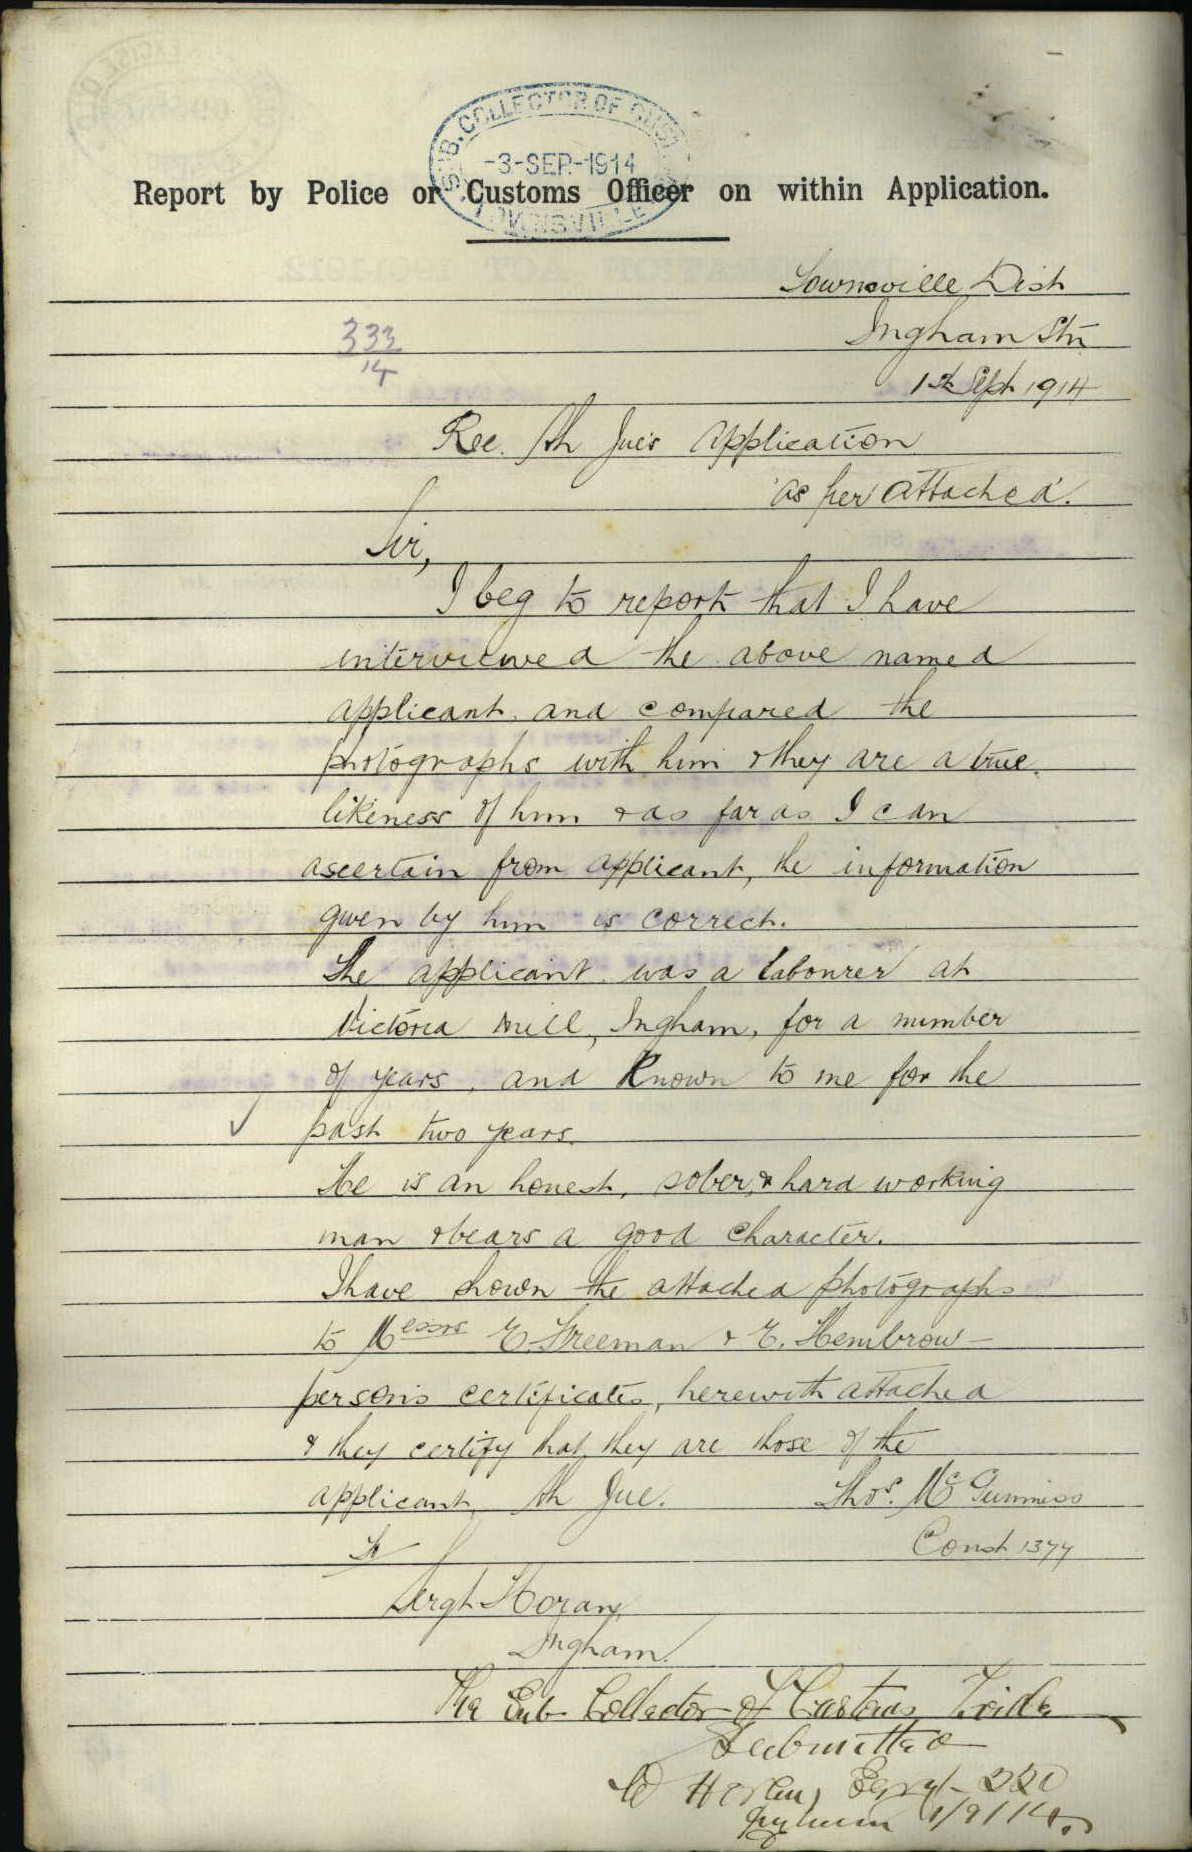 SUB. COLLECTOR OF CUSTOMS
-3-SEP.-1914
TOWNSVILLE
Report by Police or Customs Officer on within Application.
Townsville Dist
Ingham Stn
1st Sept 1914
333
14
Ree. Ah Jue's application
as per attached.
Sir,
I beg to report that I have
interviewed the above named
applicant. and compared the
photographs with him & they are a true
likeness of him & as far as I can
ascertain from applicant, the information
given by him is correct.
The applicant was a labourer at
Victoria Mill, Ingham, for a number
of years, and Known to me for the
past two years.
He is an honest, sober, & hard working
man & bears a good character.
I have shown the attached photographs
to Messrs E. Freeman & E. Hembrow -
persons certificates, herewith attached
& they certify that they are those of the
applicant Ah Jue.
Thos. McGuinniss
Const 1377
To
Sergt Horan,
Ingham.
The Sub Collector of Customs T'ville
Submitted
Horan Sergt
Ingham 1/9/14.